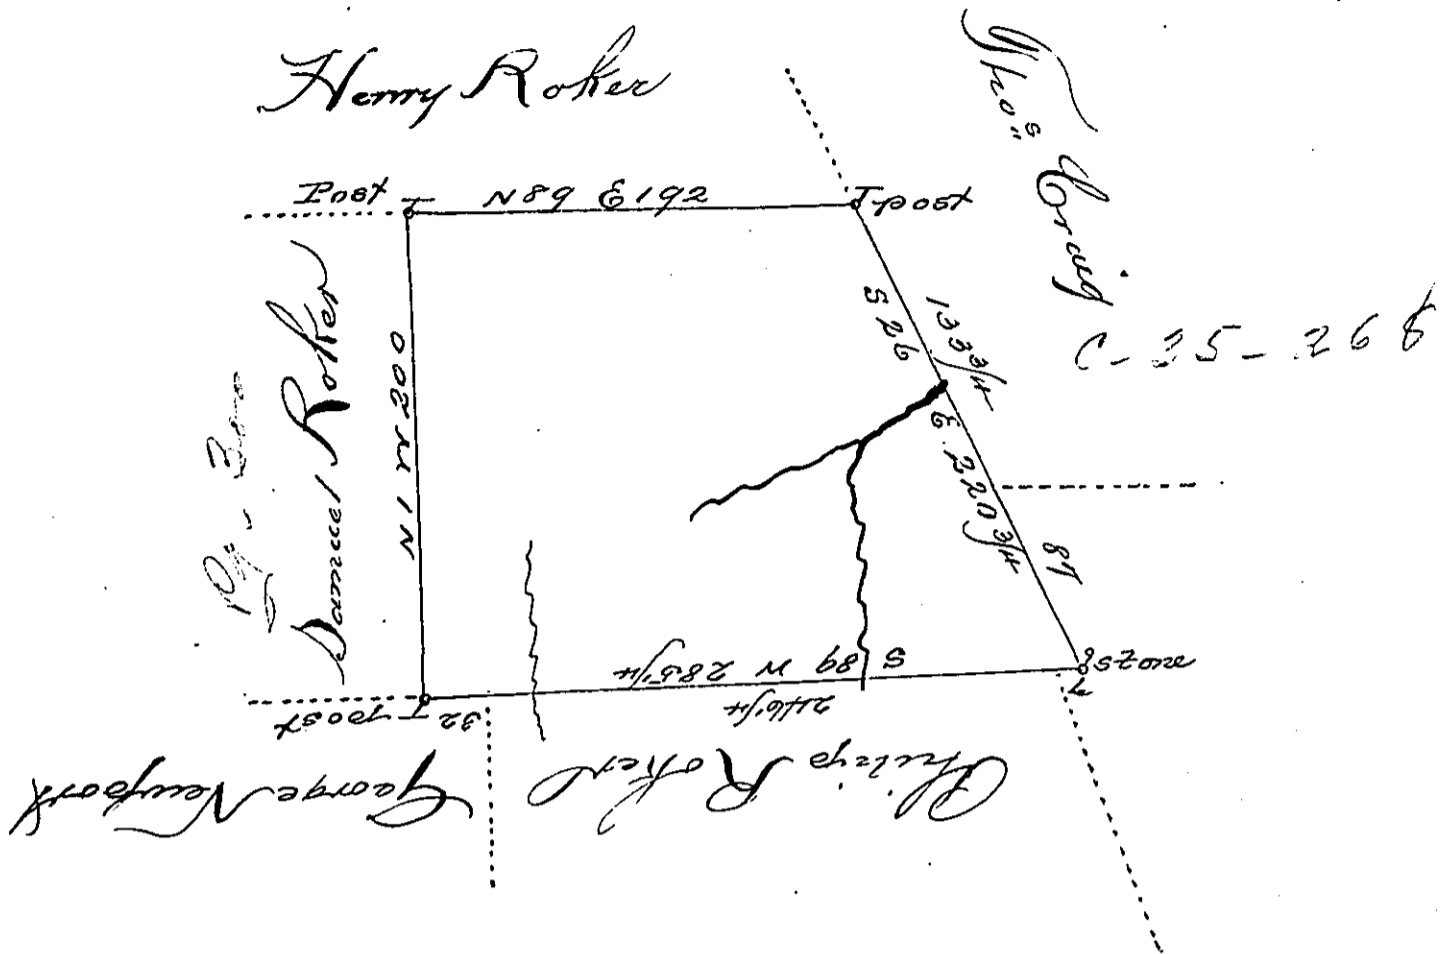 Henry Roker
Thos Craig
Post
N 89 E 192
post
S 26 E 220 3/4
133 3/4
87
C-35-268
Samuel Roker
N 1 W 200
S 89 W 285 1/4
246 1/4
32
post
stone
Philip Roker
George Newport